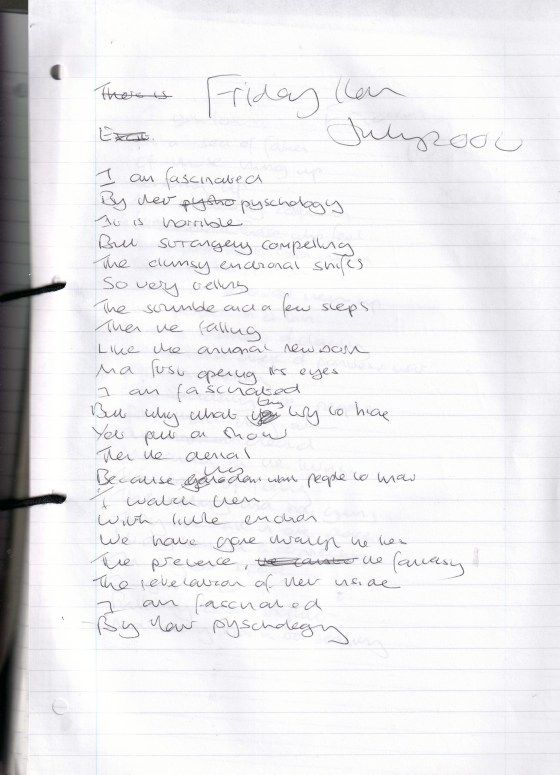 There is Friday
July 2000
I am fascinated
By her pyscho pyschology
It is horrible
But strangely compelling
The clumsy emotional shifts
So very telling
The stumble and a few steps
Then the falling
Like the animal newborn
first opening its eyes
I am fascinated
But why what try to hide
You put on show
Then the denial
Because people to know
I watch them
With little emotion
We have gone through the
The pretence, the fantasy
The revelation of her inside
I am fascinated
By her pyschology